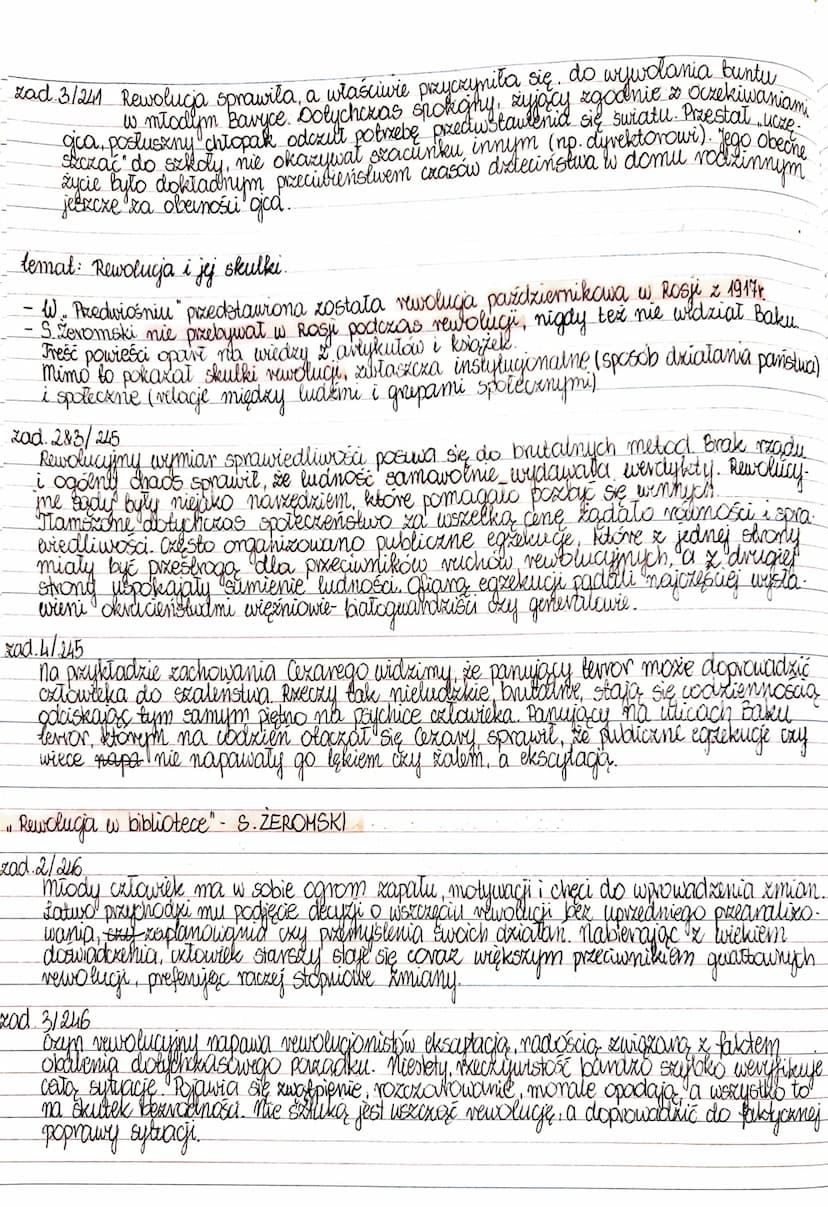 zad.3/241 Rewolucja sprawiła, a właściwie przyczyniła się do wywołania buntu
w młodym Baryce. Dotychczas spokojny, żyjący zgodnie z oczekiwaniami
ojca, posłuszny chłopak odczuł potrzebę przeciwstawienia się światu. Przestał „uczę-
szczać" do szkoły, nie okazywał szacunku innym (np. dyrektorowi). Jego obecne
życie było dokładnym przeciwieństwem czasów dzieciństwa w domu rodzinnym
jeszcze za obecności ojca.
temat: Rewolucja i jej skutki.
- W „Przedwiośniu" przedstawiona została rewolucja październikowa w Rosji z 1917r.
- S.Żeromski nie przebywał w Rosji podczas rewolucji, nigdy też nie widział Baku.
Treść powieści oparł na wiedzy z artykułów i książek.
Mimo to pokazał skutki rewolucji, zwłaszcza instytucjonalne (sposób działania państwa)
i społeczne (relacje między ludźmi i grupami społecznymi)
zad. 2&3/245
Rewolucyjny wymiar sprawiedliwości posuwa się do brutalnych metod. Brak rządu
i ogólny chaos sprawił, że ludność samowolnie wydawała werdykty. Rewolucyj-
ne sądy były niejako narzędziem, które pomagało pozbyć się winnych.
Tłamszone dotychczas społeczeństwo za wszelką cenę żądało wolności i spra-
wiedliwości. Często organizowano publiczne egzekucje, które z jednej strony
miały być przestrogą dla przeciwników ruchów rewolucyjnych, a z drugiej
strony uspokajały sumienie ludności. Ofiarą egzekucji padali najczęściej wysła-
wieni okrucieństwami więźniowie- białogwardziści czy generałowie.
zad.4/245
Na przykładzie zachowania Cezarego widzimy, że panujący terror może doprowadzić
człowieka do szaleństwa. Rzeczy tak nieludzkie, brutalne, stają się codziennością
odciskając tym samym piętno na psychice człowieka. Panujący na ulicach Baku
terror, którym na codzień otaczał się Cezary, sprawił, że publiczne egzekucje czy
wiece napa nie napawały go lękiem czy żalem, a ekscytacją.
„Rewolucja w bibliotece" - S. ŻEROMSKI
zad.2/246
Młody człowiek ma w sobie ogrom zapału, motywacji i chęci do wprowadzenia zmian.
Łatwo przychodzi mu podjęcie decyzji o wszczęciu rewolucji bez uprzedniego przeanalizo-
wania, czy zaplanowania czy przemyślenia swoich działań. Nabierając z wiekiem
doświadczenia, człowiek starszy staje się coraz większym przeciwnikiem gwałtownych
rewolucji, preferując raczej stopniowe zmiany.
zad. 3/246
Czyn rewolucyjny napawa rewolucjonistów ekscytacją, radością związaną z faktem
obalenia dotychczasowego porządku. Niestety, rzeczywistość bardzo szybko weryfikuje
całą sytuację. Pojawia się zwątpienie, rozczarowanie, morale opadają, a wszystko to
na skutek bezradności. Nie sztuką jest wszcząć rewolucję, a doprowadzić do faktycznej
poprawy sytuacji.